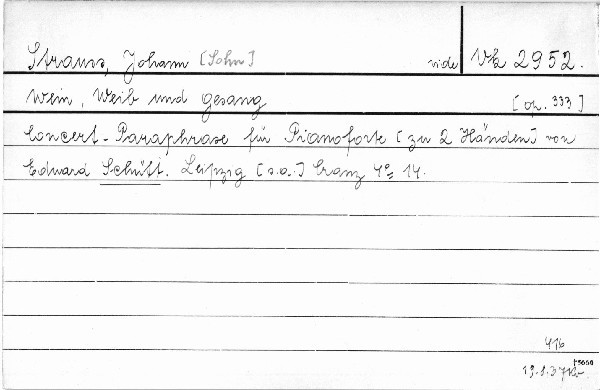 Strauss, Johann [Sohn] vide Vk 2952.
Wein, Weib und Gesang [op. 333]
Concert-Paraphrase für Pianoforte [zu 2 Händen] von
Eduard Schütt. Leipzig [s.a.] Cranz 4° 14.
416
19.1.37